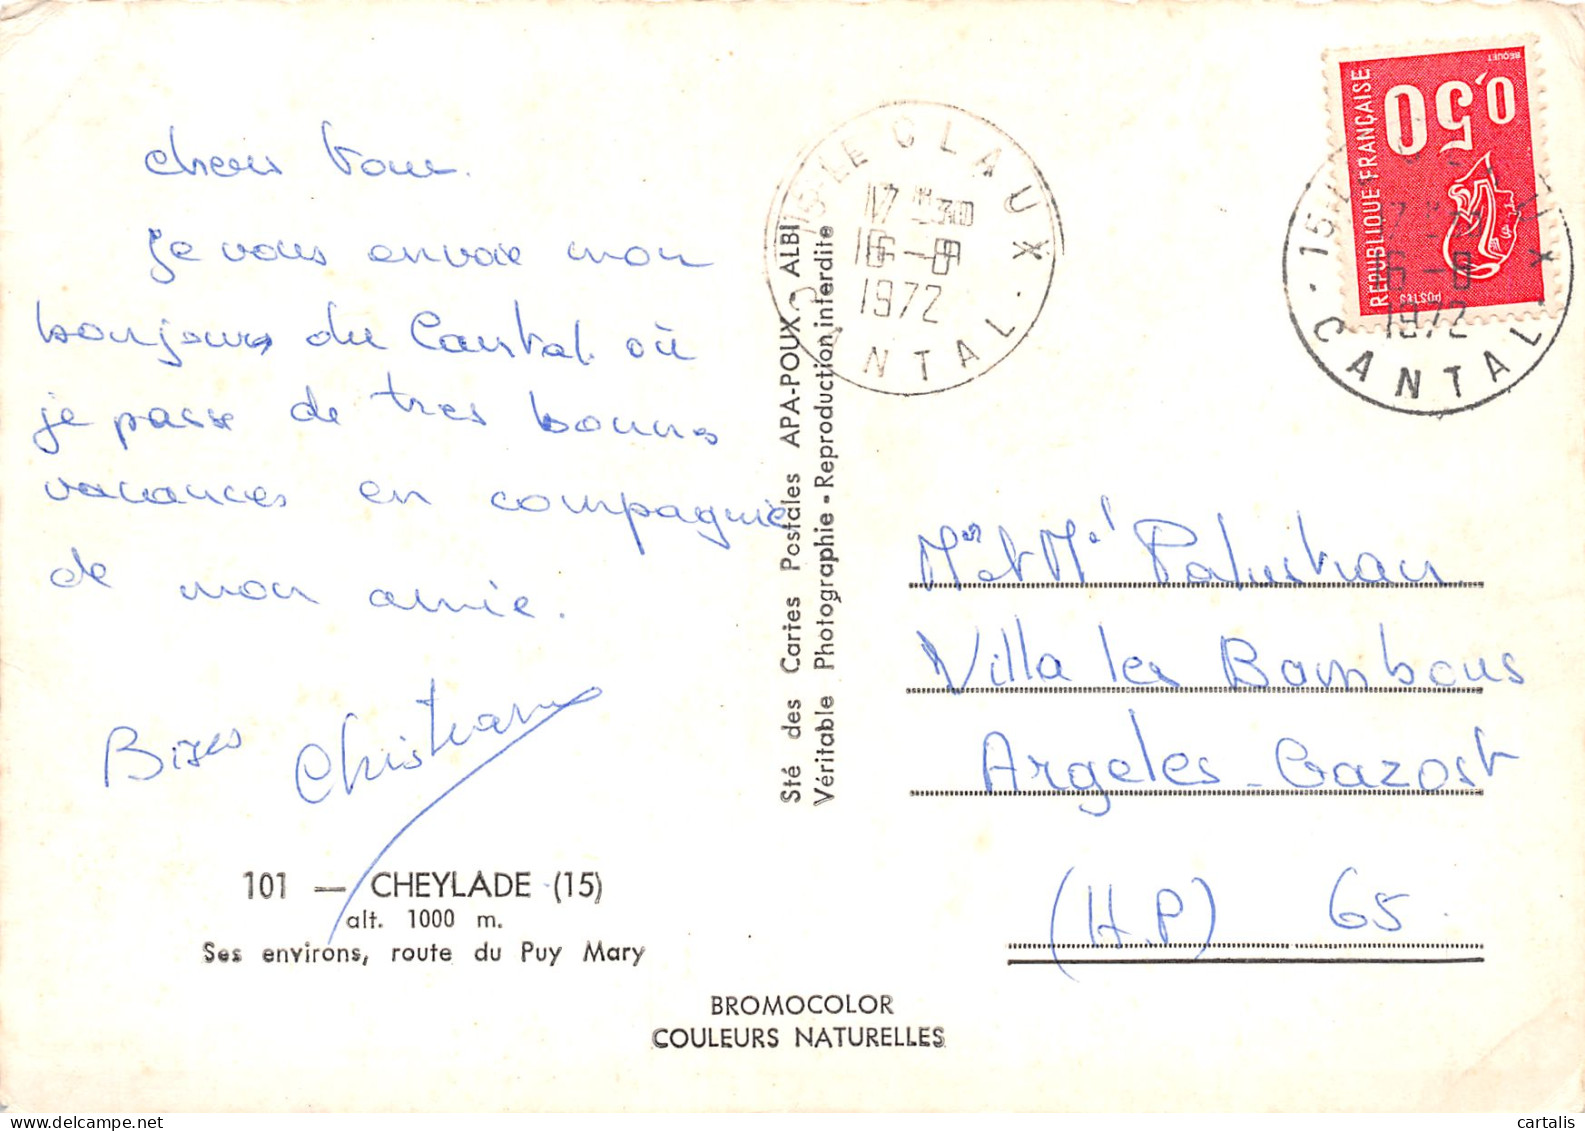 chers tous.
Je vous envoie mon
bonjour du Cantal où
je passe de tres bonnes
vacances en compagnie
de mon amie.
Bises Christiane
101 — CHEYLADE (15)
alt. 1000 m.
Ses environs, route du Puy Mary
BROMOCOLOR
COULEURS NATURELLES
Sté des Cartes Postales APA-POUX - ALBI
Véritable Photographie - Reproduction interdite
15-LE CLAUX
17H30
16-8
1972
CANTAL
0,50
REPUBLIQUE FRANÇAISE
POSTES
BEQUET
15-LE CLAUX
17H30
16-8
1972
CANTAL
Mr et Me
Villa les Bambous
Argeles-Gazost
(H.P) 65.
cartalis
www.delcampe.net